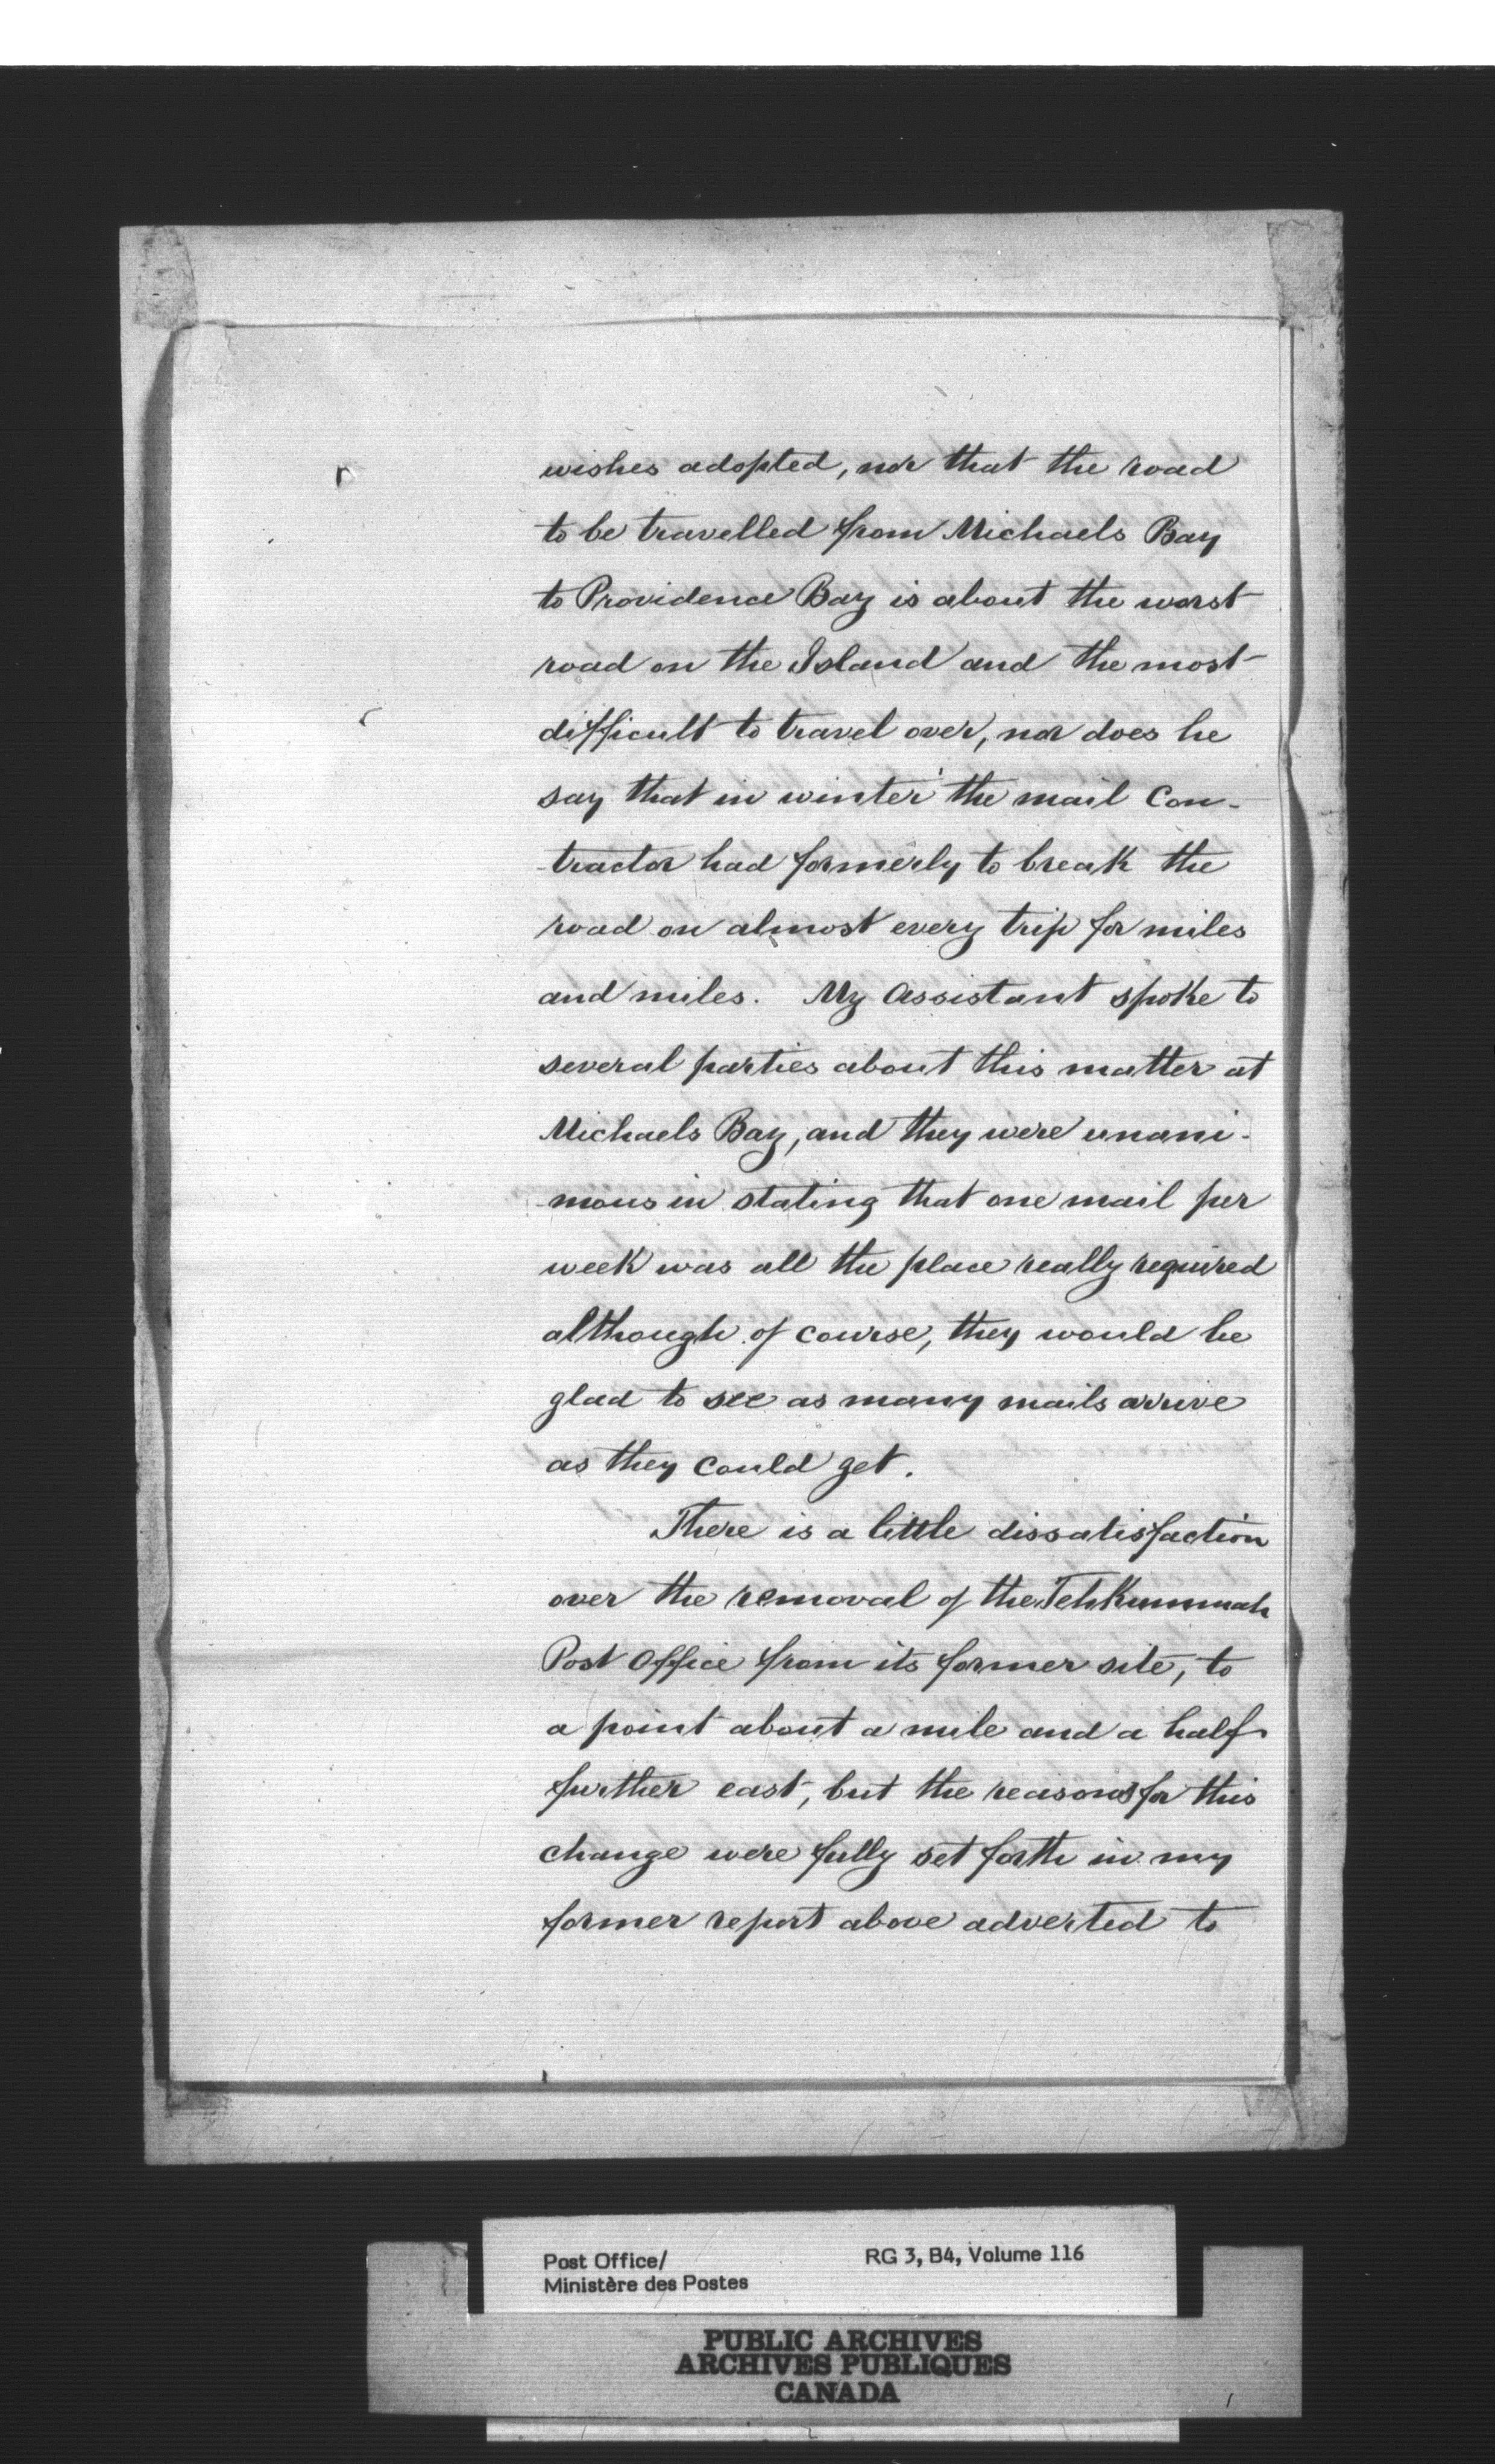 wishes adopted, nor that the road
to be travelled from Michaels Bay
to Providence Bay is about the worst
road on the Island and the most
difficult to travel over, nor does he
say that in winter the mail Con-
-tractor had formerly to break the
road on almost every trip for miles
and miles. My Assistant spoke to
several parties about this matter at
Michaels Bay, and they were unani-
-mous in stating that one mail per
week was all the place really required
although of course, they would be
glad to see as many mails arrive
as they could get.
There is a little dissatisfaction
over the removal of the Tehkummah
Post Office from its former site, to
a point about a mile and a half
further east, but the reasons for this
change were fully set forth in my
former report above adverted to
Post Office/ RG 3, B4, Volume 116
Ministère des Postes
PUBLIC ARCHIVES
ARCHIVES PUBLIQUES
CANADA